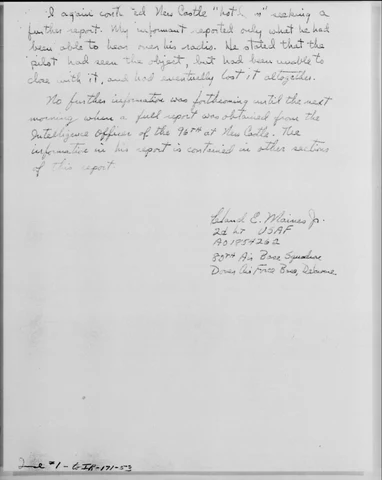 I again cont ed New Castle "hot s" seeking a
further report. My informant reported only what he had
been able to hear over his radio. He stated that the
pilot had seen the object, but had been unable to
close with it, and had eventually lost it altogether.
No further information was forthcoming until the next
morning where a full report was obtained from the
Intelligence Officer of the 96th at New Castle. The
information in his report is contained in other sections
of this report
Claud C. Maines Jr.
2d Lt USAF
80th Air Base Squadron
Dover Air Force Base, Delaware
#1 - 6 IR-171-53